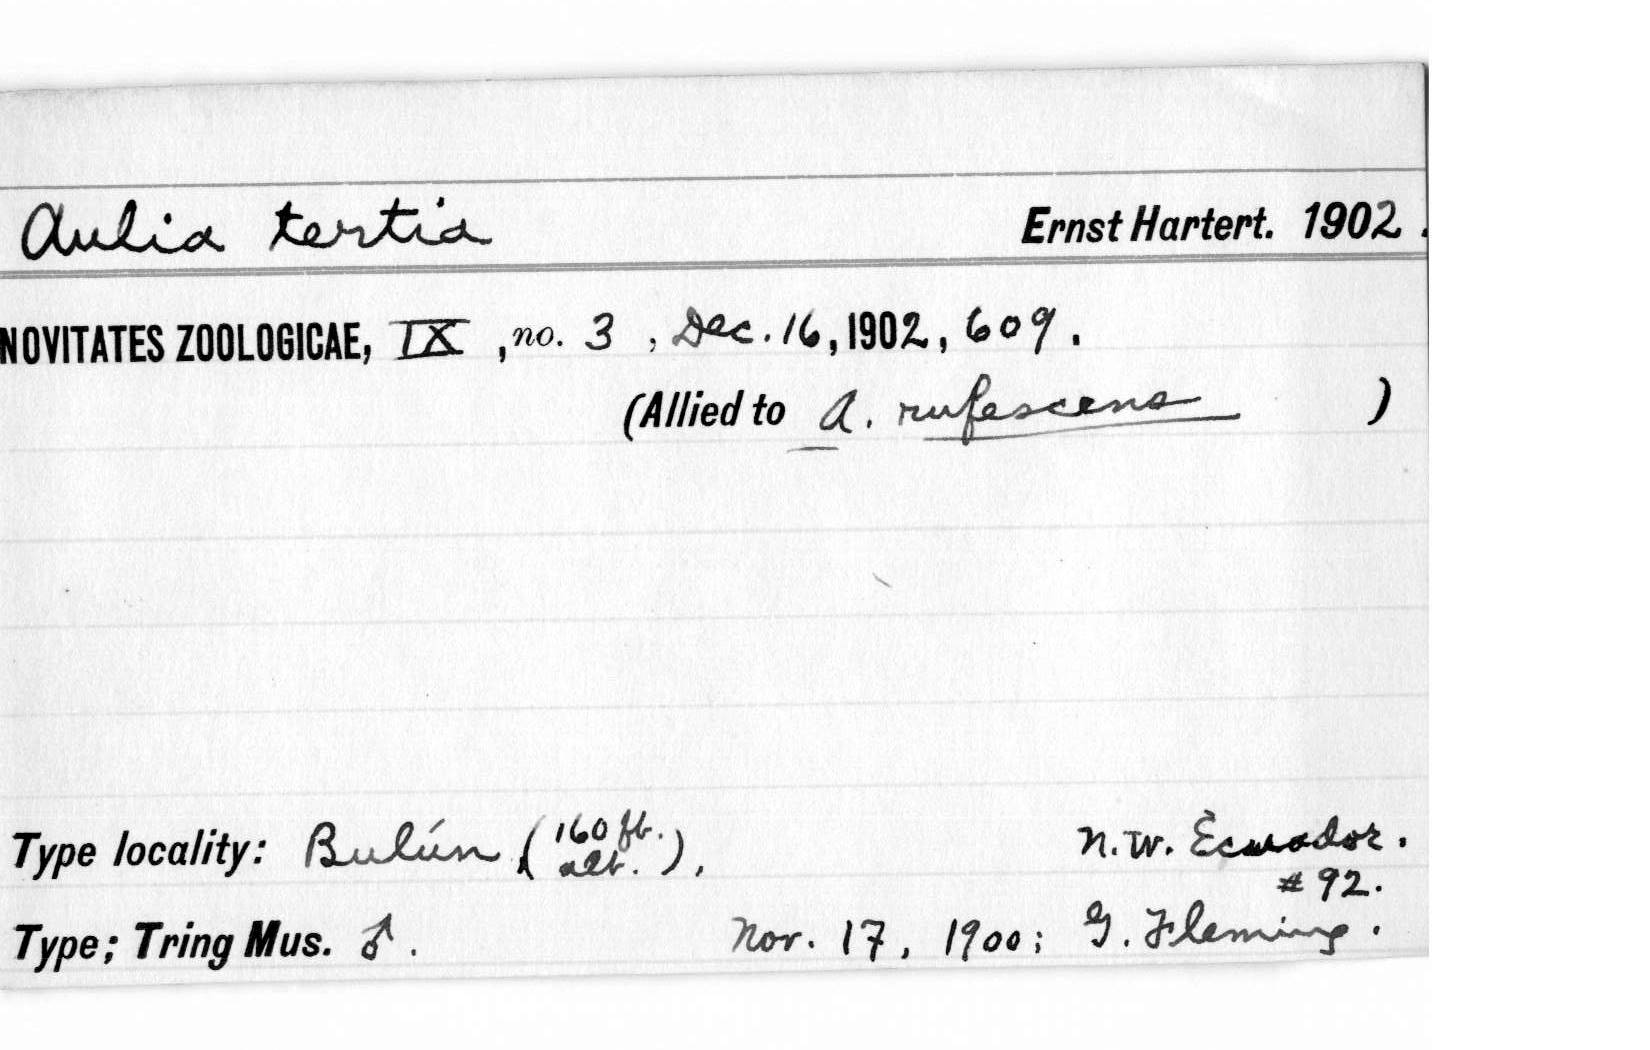 Aulia tertia Ernst Hartert. 1902.
NOVITATES ZOOLOGICAE, IX, no. 3, Dec. 16, 1902, 609.
(Allied to A. rufescens)
Type locality: Bulún (160 ft. alt.), N.W. Ecuador.
#92.
Type; Tring Mus. ♂. Nov. 17, 1900; G. Fleming.